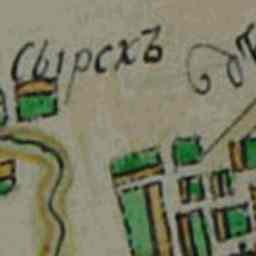 Сырскъ